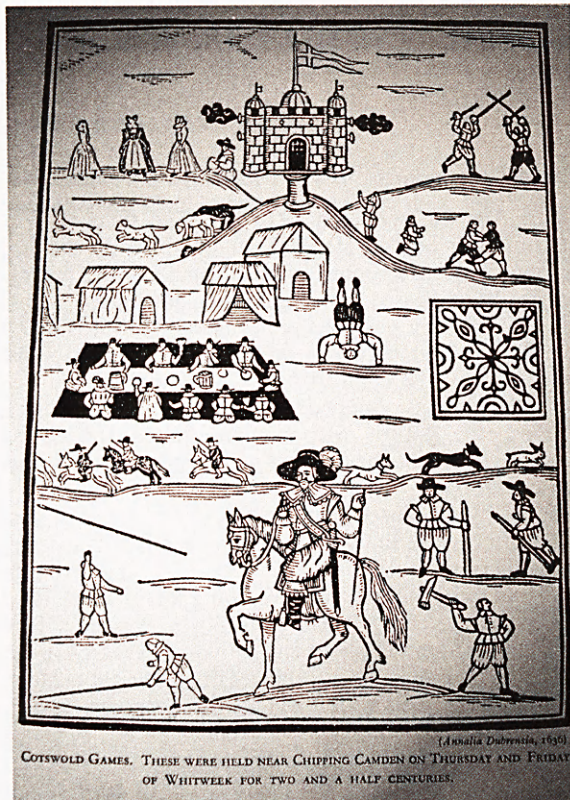 (Annalia Dubrensia, 1636)
COTSWOLD GAMES. THESE WERE HELD NEAR CHIPPING CAMDEN ON THURSDAY AND FRIDAY
OF WHITWEEK FOR TWO AND A HALF CENTURIES.